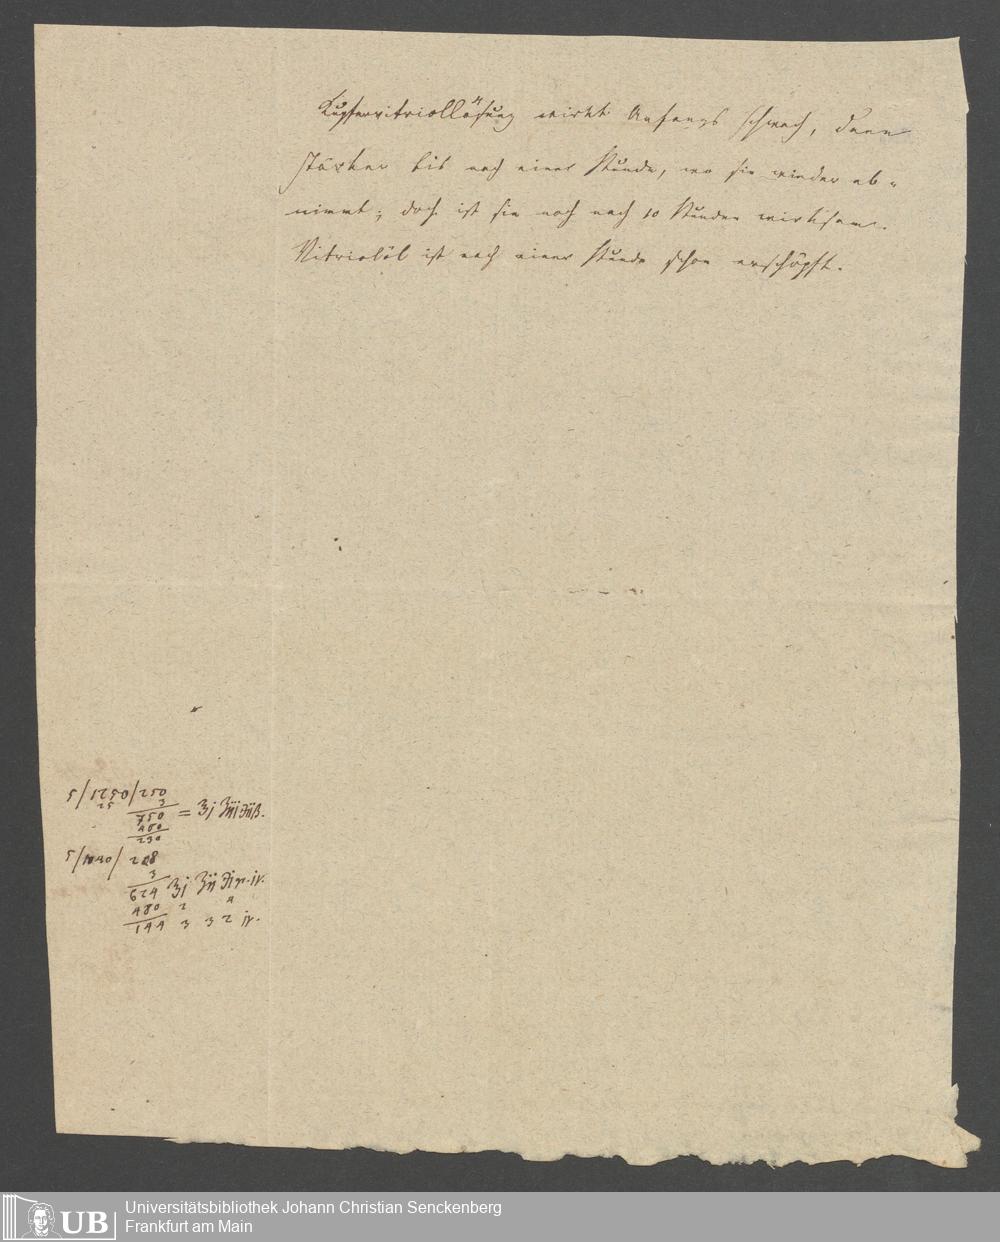 Kupfervitriollösung wirkt Anfangs schwach, dann
stärker bis nach einer Stunde, wo sie wieder ab-
nimmt; doch ist sie noch nach 10 Stunden wirksam.
Vitriolöl ist nach einer Stunde schon erschöpft.
5/1250/250
25 3
750 = ʒj ʒiij ℈iiß.
480
230
5/1040/208
3
624 ʒj ʒij ℈j gr. iv.
480 2 4
144 3 3 2 iv.
UB
Universitätsbibliothek Johann Christian Senckenberg
Frankfurt am Main